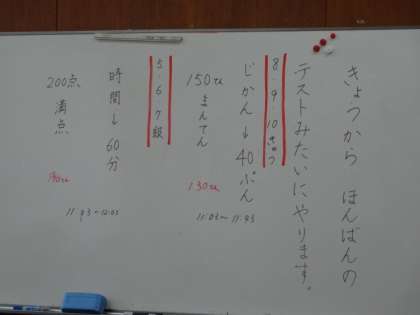 きょうから ほんばんの
テストみたいにやります。
8・9・10きゅう
じかん→40ぷん
150てんまんてん
130てん
11:03〜11:43
5・6・7級
時間→60分
200点満点
11:03〜12:03